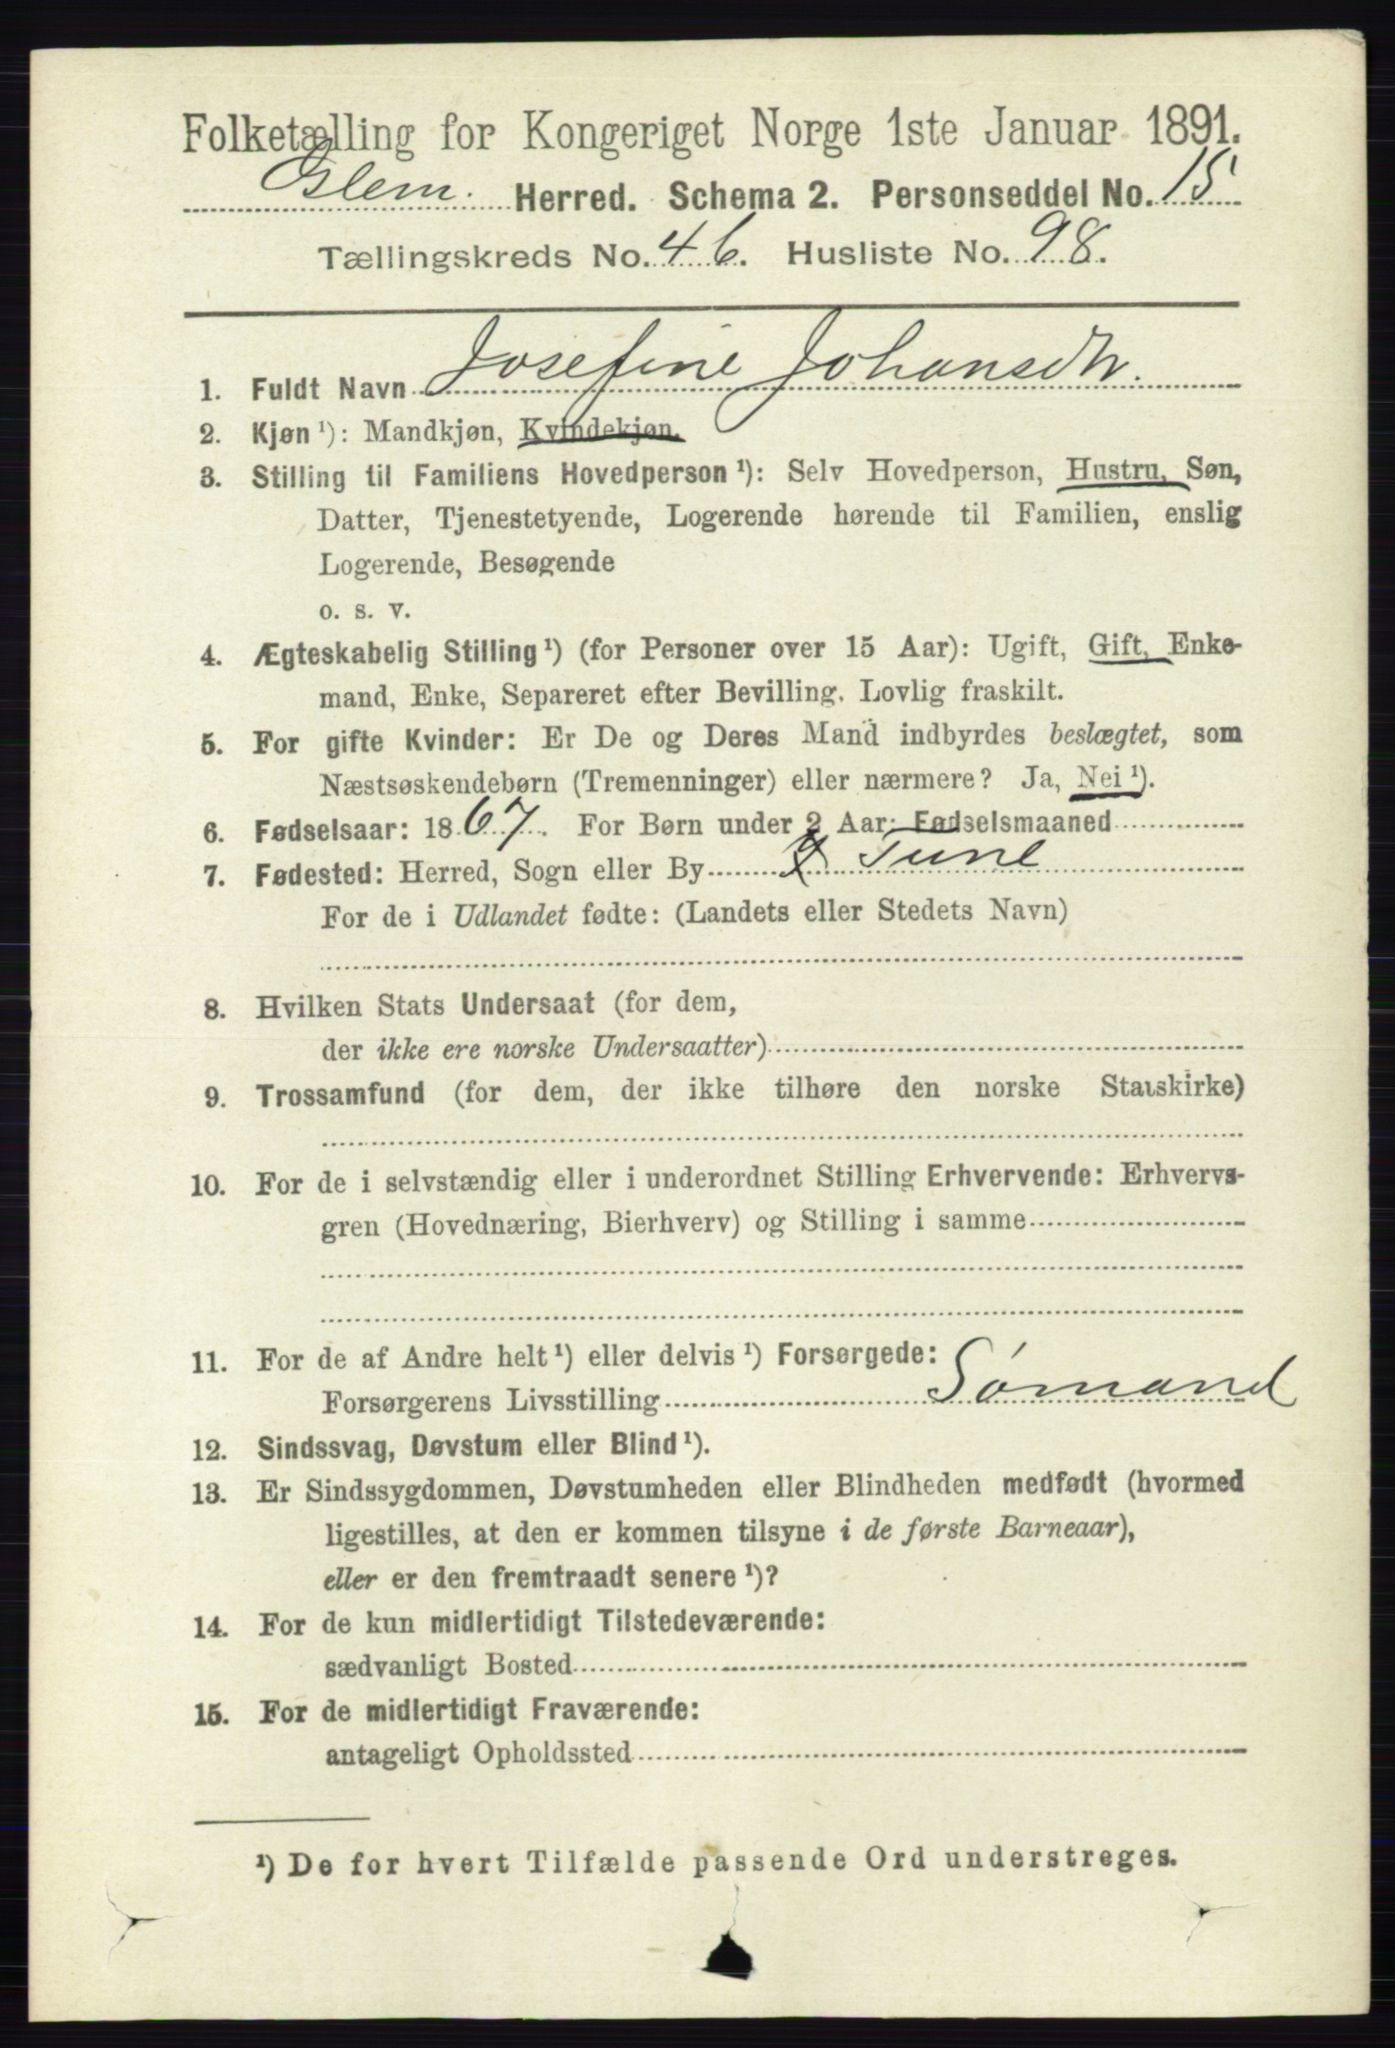 Folketælling for Kongeriget Norge 1ste Januar 1891.
Glem. Herred. Schema 2. Personseddel No. 15
Tællingskreds No. 46. Husliste No. 98.
1. Fuldt Navn Josefine Johansdtr.
2. Kjøn ¹): Mandkjøn, Kvindekjøn.
3. Stilling til Familiens Hovedperson ¹): Selv Hovedperson, Hustru, Søn,
Datter, Tjenestetyende, Logerende hørende til Familien, enslig
Logerende, Besøgende
o. s. v.
4. Ægteskabelig Stilling ¹) (for Personer over 15 Aar): Ugift, Gift, Enke-
mand, Enke, Separeret efter Bevilling. Lovlig fraskilt.
5. For gifte Kvinder: Er De og Deres Mand indbyrdes beslægtet, som
Næstsøskendebørn (Tremenninger) eller nærmere? Ja, Nei ¹).
6. Fødselsaar: 1867. For Børn under 2 Aar: Fødselsmaaned
7. Fødested: Herred, Sogn eller By Tune
For de i Udlandet fødte: (Landets eller Stedets Navn)
8. Hvilken Stats Undersaat (for dem,
der ikke ere norske Undersaatter)
9. Trossamfund (for dem, der ikke tilhøre den norske Statskirke)
10. For de i selvstændig eller i underordnet Stilling Erhvervende: Erhvervs-
gren (Hovednæring, Bierhverv) og Stilling i samme
11. For de af Andre helt ¹) eller delvis ¹) Forsørgede:
Forsørgerens Livsstilling Sómand
12. Sindssvag, Døvstum eller Blind ¹).
13. Er Sindssygdommen, Døvstumheden eller Blindheden medfødt (hvormed
ligestilles, at den er kommen tilsyne i de første Barneaar),
eller er den fremtraadt senere ¹)?
14. For de kun midlertidigt Tilstedeværende:
sædvanligt Bosted
15. For de midlertidigt Fraværende:
antageligt Opholdssted
¹) De for hvert Tilfælde passende Ord understreges.